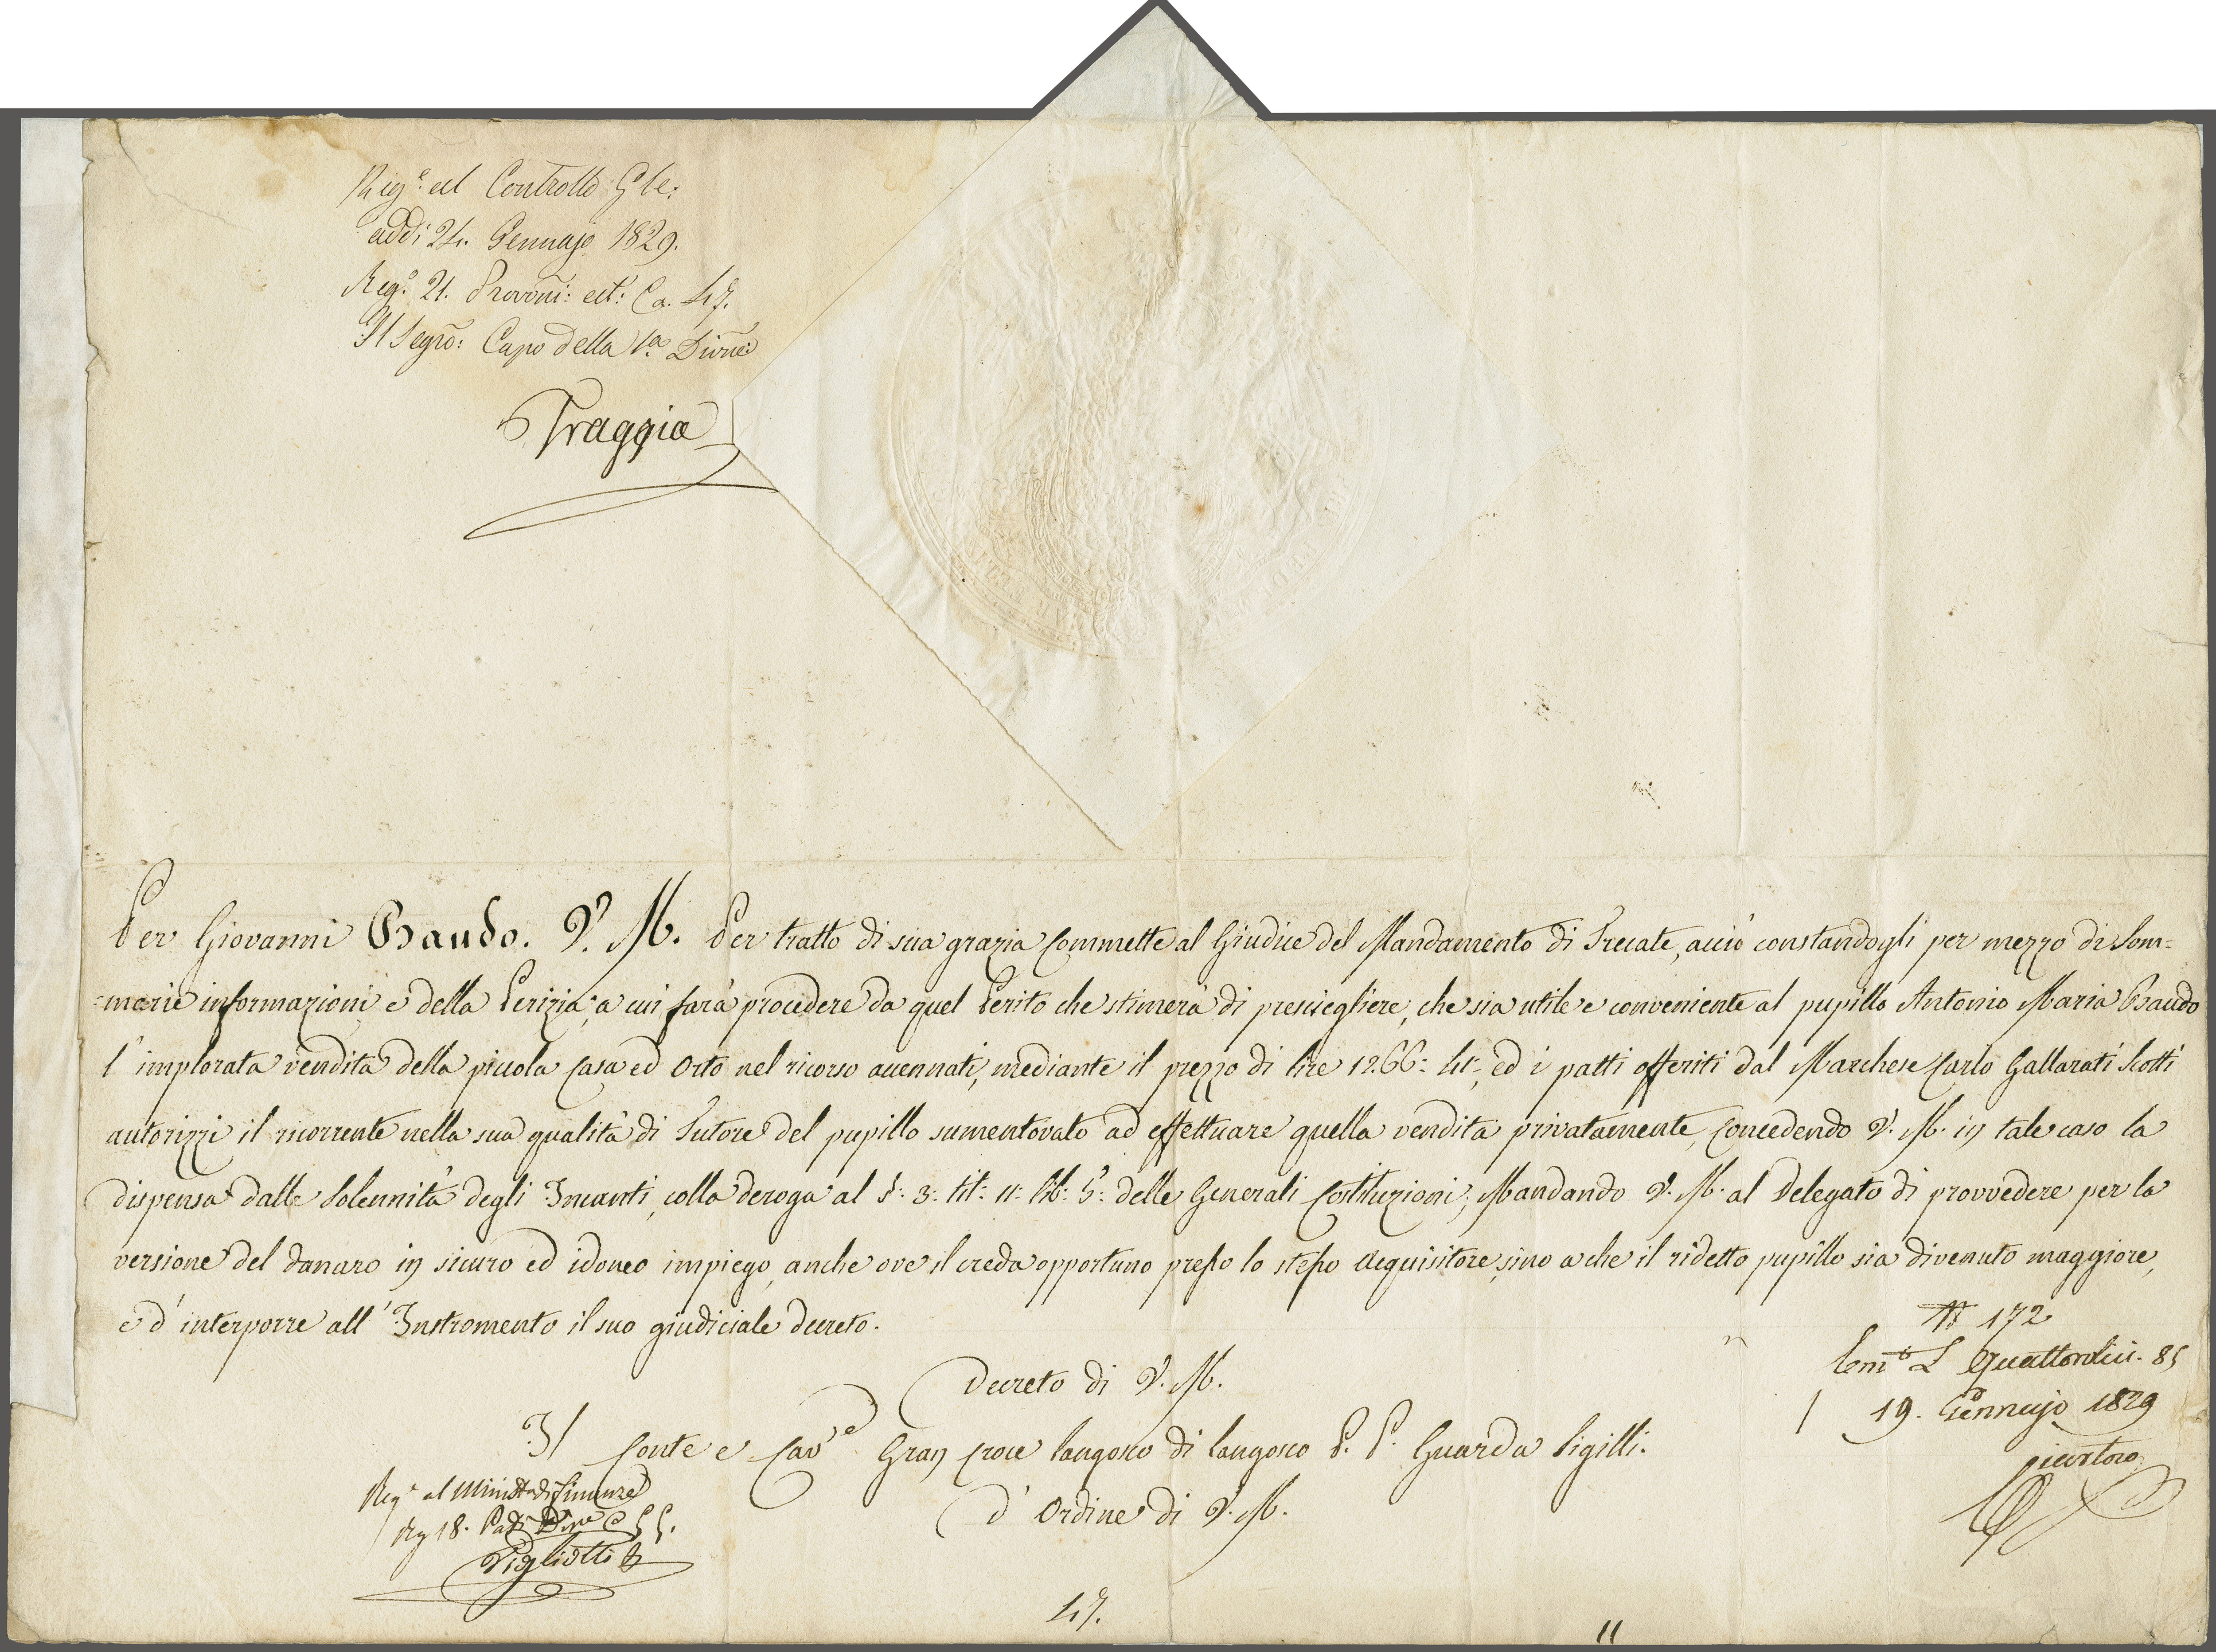 Reg.° al Controllo G.le:
addi 24. Gennajo 1829.
Reg.° 21. Provoñi: ect: Ca. 47.
Il Segrõ: Capo della 1.a Divñe
Traggia
Per Giovanni Baudo. S. M. Per tratto di sua grazia commette al Giudice del Mandamento di Trecate, acciò constandogli per mezzo di Som=
=marie informazioni e della Perizia, a cui farà procedere da quel Perito che stimerà di prescegliere, che sia utile e conveniente al pupillo Antonio Maria Baudo
l'implorata vendita della piccola casa ed Orto nel ricorso accennati, mediante il prezzo di lire 1266: 4:, ed i patti offeriti dal Marchese Carlo Gallarati Scotti
autorizzi il ricorrente nella sua qualità di Tutore del pupillo sumentovato ad effettuare quella vendita privatamente, concedendo S. M. in tale caso la
dispensa dalle Solennità degli Incanti, colla deroga al §: 3: tit: 11: lib: 5: delle Generali Costituzioni; Mandando S. M. al Delegato di provvedere per la
versione del danaro in sicuro ed idoneo impiego, anche ove il creda opportuno presso lo stesso Acquisitore, sino a che il ridetto pupillo sia divenuto maggiore,
e d'interporre all'Instromento il suo giudiciale decreto.
N 172
L Quattordici. 85
19. Gennajo 1829
Decreto di S. M.
Il Conte e Cav.e Gran Croce Langosco di Langosco P. P. Guarda Sigilli.
D'Ordine di S. M.
Reg.° al Minist.° di Finanze
Rg 18.
Vigliotti
47.
11